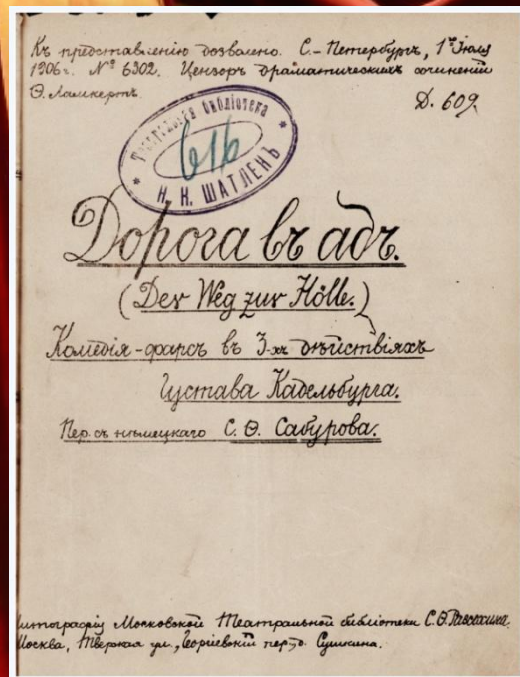 Къ представленію дозволено. С.-Петербургъ, 1го Іюля
1906 г. № 6302. Цензоръ драматическихъ сочиненій
Ѳ. Ламкертъ.
Д. 609.
Театральная библіотека
616
Н. Н. ШАТЛЕНЪ
Дорога въ адъ.
(Der Weg zur Hölle.)
Комедія-фарсъ въ 3-хъ дѣйствіяхъ
Густава Кадельбурга.
Пер. съ нѣмецкаго С. Ѳ. Сабурова.
Литографія Московской Театральной библіотеки С. Ѳ. Разсохина.
Москва, Тверская ул., Георгіевскій пер., д. Сушкина.